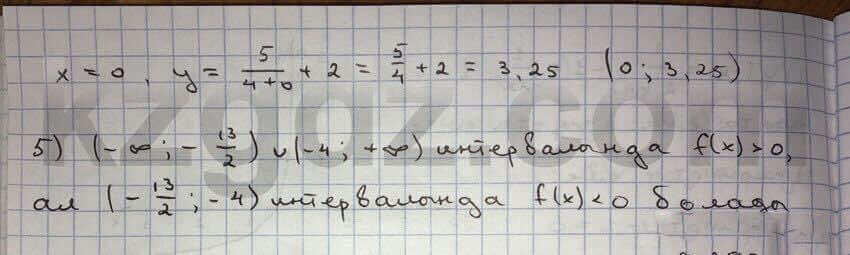 x = 0, y = 5/(4+0) + 2 = 5/4 + 2 = 3,25 (0; 3,25)
kzgdz.com
5) (-∞; -13/2) ∪ (-4; +∞) интервалында f(x) > 0,
ал (-13/2; -4) интервалында f(x) < 0 болады